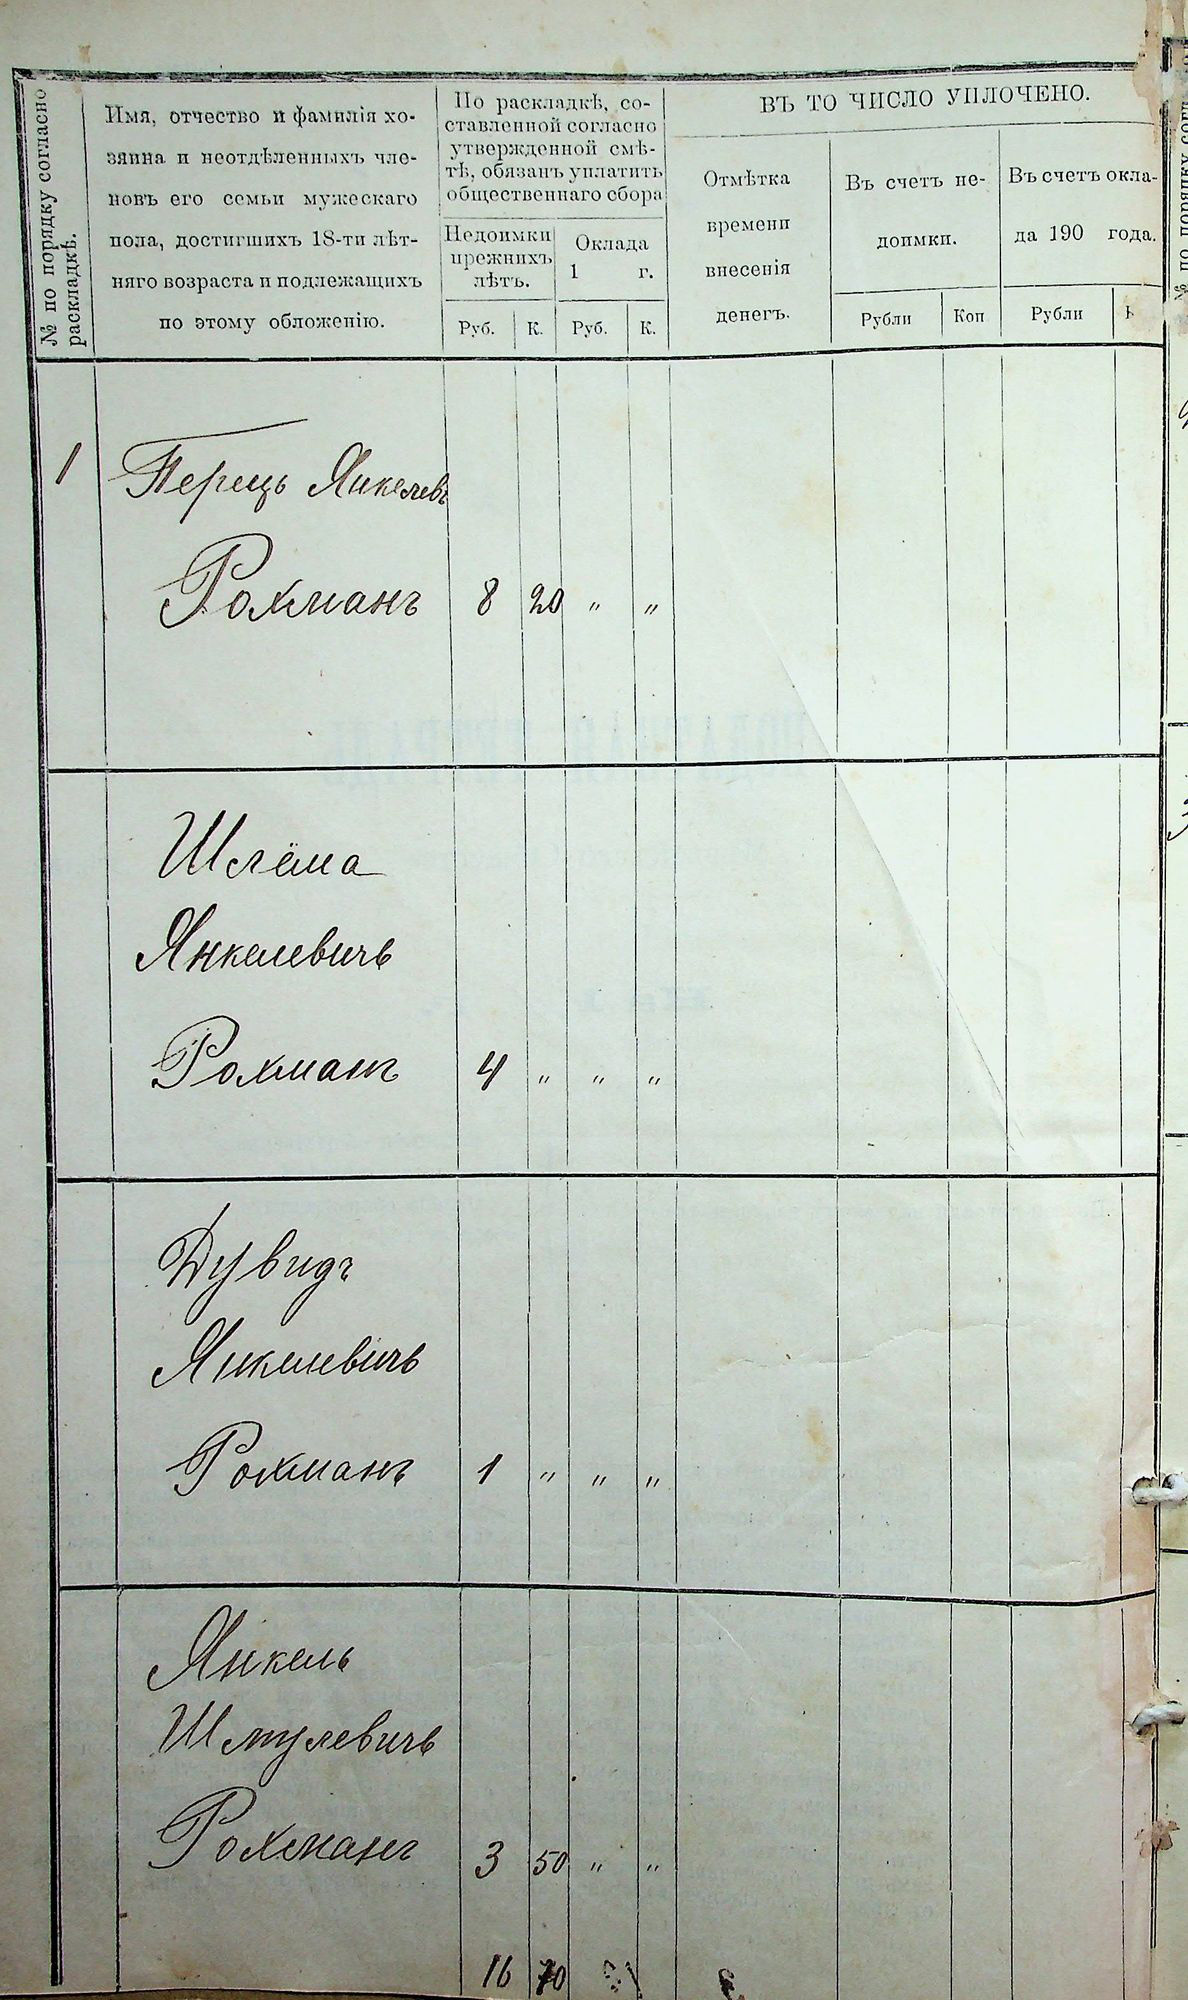 № по порядку согласно
раскладкѣ.
Имя, отчество и фамилія хо-
зяина и неотдѣленныхъ чле-
новъ его семьи мужескаго
пола, достигшихъ 18-ти лѣт-
няго возраста и подлежащихъ
по этому обложенію.
По раскладкѣ, со-
ставленной согласно
утвержденной смѣ-
тѣ, обязанъ уплатить
общественнаго сбора
Недоимки
прежнихъ
лѣтъ.
Оклада
1 г.
Руб. К. Руб. К.
ВЪ ТО ЧИСЛО УПЛОЧЕНО.
Отмѣтка
времени
внесенія
денегъ.
Въ счетъ не-
доимки.
Въ счетъ окла-
да 190 года.
Рубли Коп Рубли
1 Перецъ Янкелевъ
Рохманъ 8 20 " "
Шлёма
Янкелевичъ
Рохманъ 4 " " "
Дувидъ
Янкелевичъ
Рохманъ 1 " " "
Янкель
Шмулевичъ
Рохманъ 3 50 " "
16 70